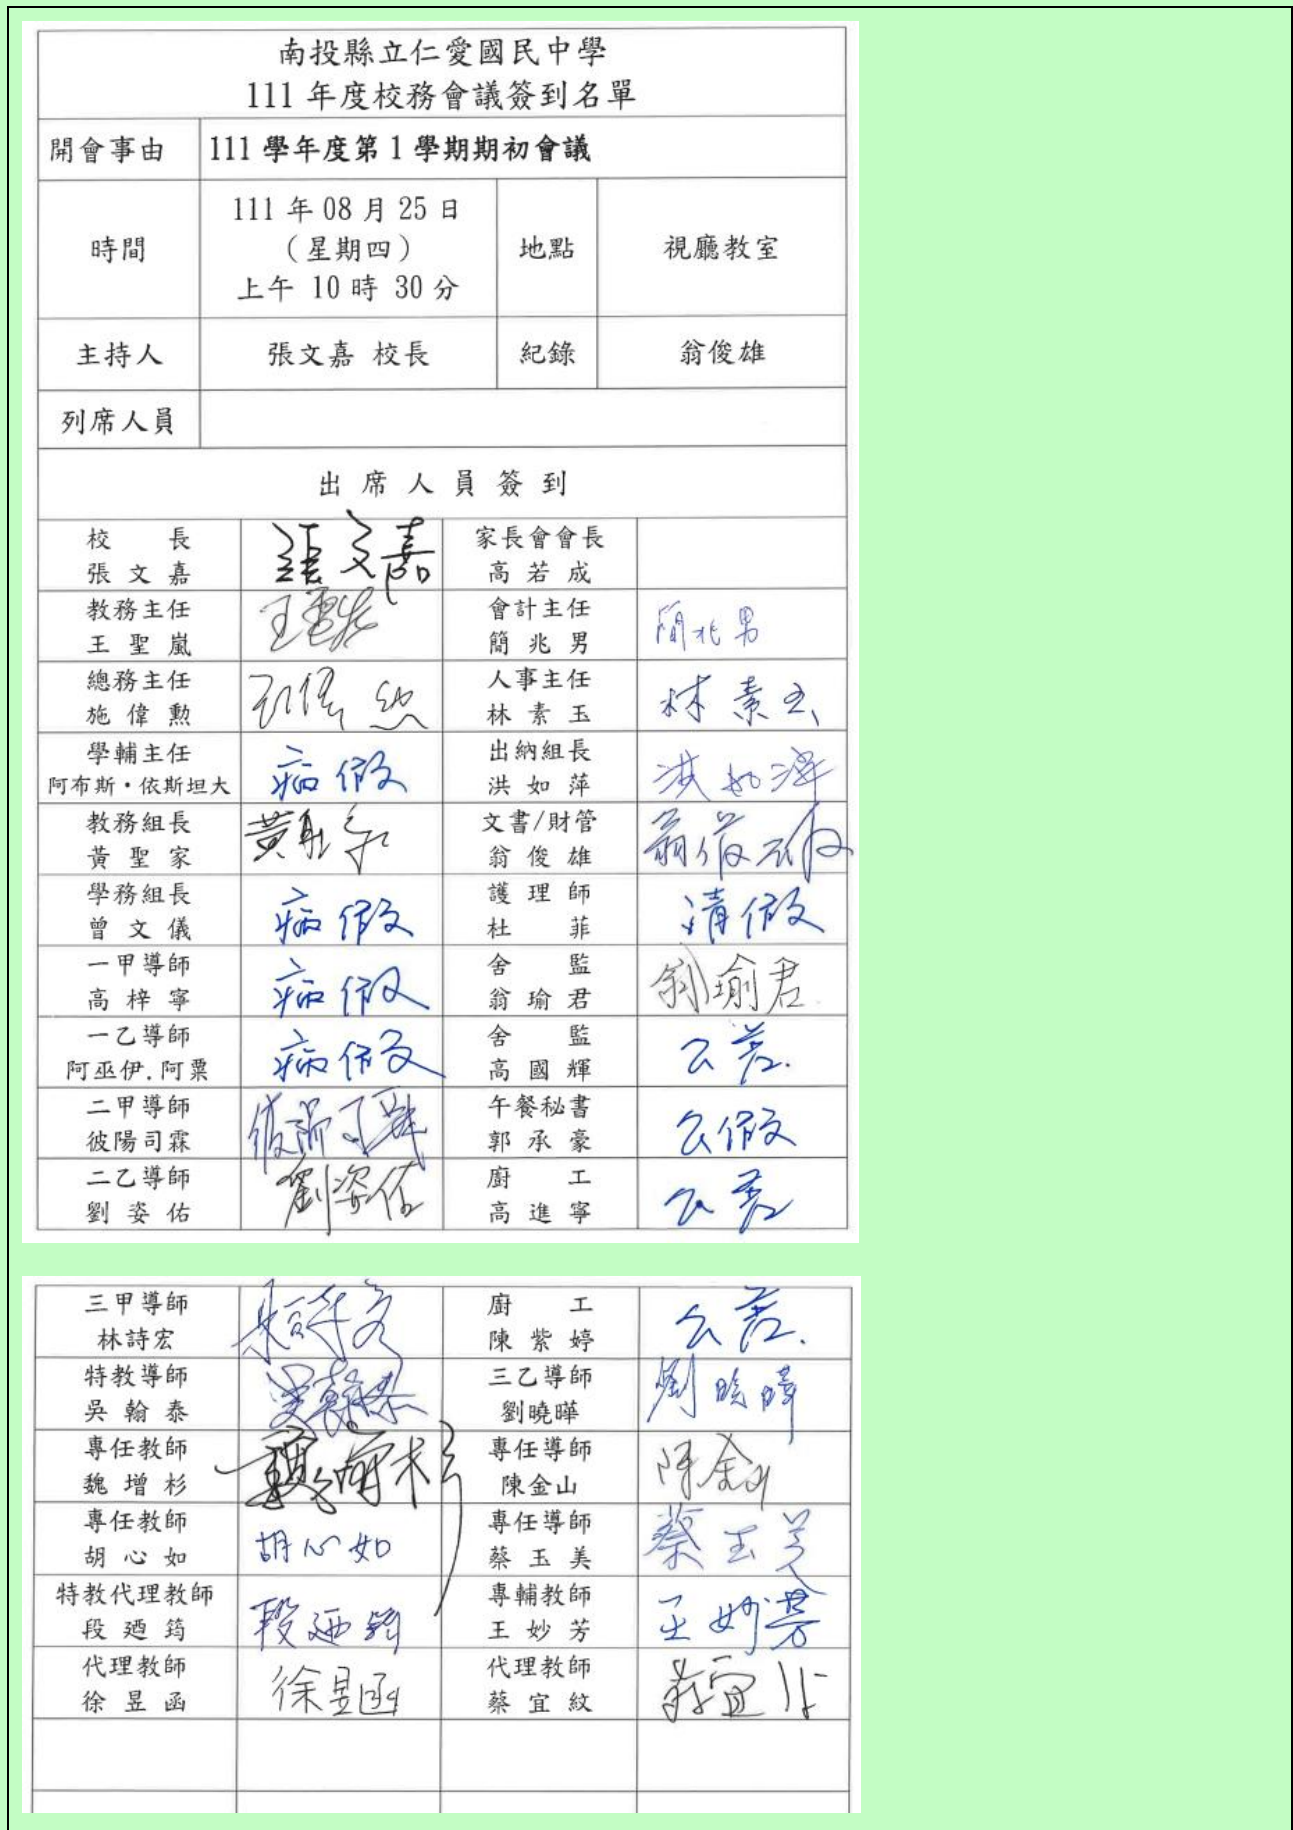 南投縣立仁愛國民中學
111 年度校務會議簽到名單
開會事由 111 學年度第 1 學期期初會議
時間 111 年 08 月 25 日 (星期四) 上午 10 時 30 分 地點 視廳教室
主持人 張文嘉 校長 紀錄 翁俊雄
列席人員
出席人員簽到
校長 張文嘉 張文嘉 家長會會長 高若成
教務主任 王聖嵐 王聖嵐 會計主任 簡兆男 簡兆男
總務主任 施偉勲 人事主任 林素玉 林素玉
學輔主任 阿布斯·依斯坦大 病假 出納組長 洪如萍 洪如萍
教務組長 黃聖家 黃聖家 文書/財管 翁俊雄 翁俊雄
學務組長 曾文儀 病假 護理師 杜菲 請假
一甲導師 高梓寧 病假 舍監 翁瑜君 翁瑜君
一乙導師 阿巫伊.阿粟 病假 舍監 高國輝 公差.
二甲導師 彼陽司霖 彼陽司霖 午餐秘書 郭承豪 公假
二乙導師 劉姿佑 劉姿佑 廚工 高進寧 公差
三甲導師 林詩宏 林詩宏 廚工 陳紫婷 公差.
特教導師 吳翰泰 吳翰泰 三乙導師 劉曉曄 劉曉曄
專任教師 魏增杉 魏增杉 專任導師 陳金山 陳金山
專任教師 胡心如 胡心如 專任導師 蔡玉美 蔡玉美
特教代理教師 段廼筠 段廼筠 專輔教師 王妙芳 王妙芳
代理教師 徐昱函 徐昱函 代理教師 蔡宜紋